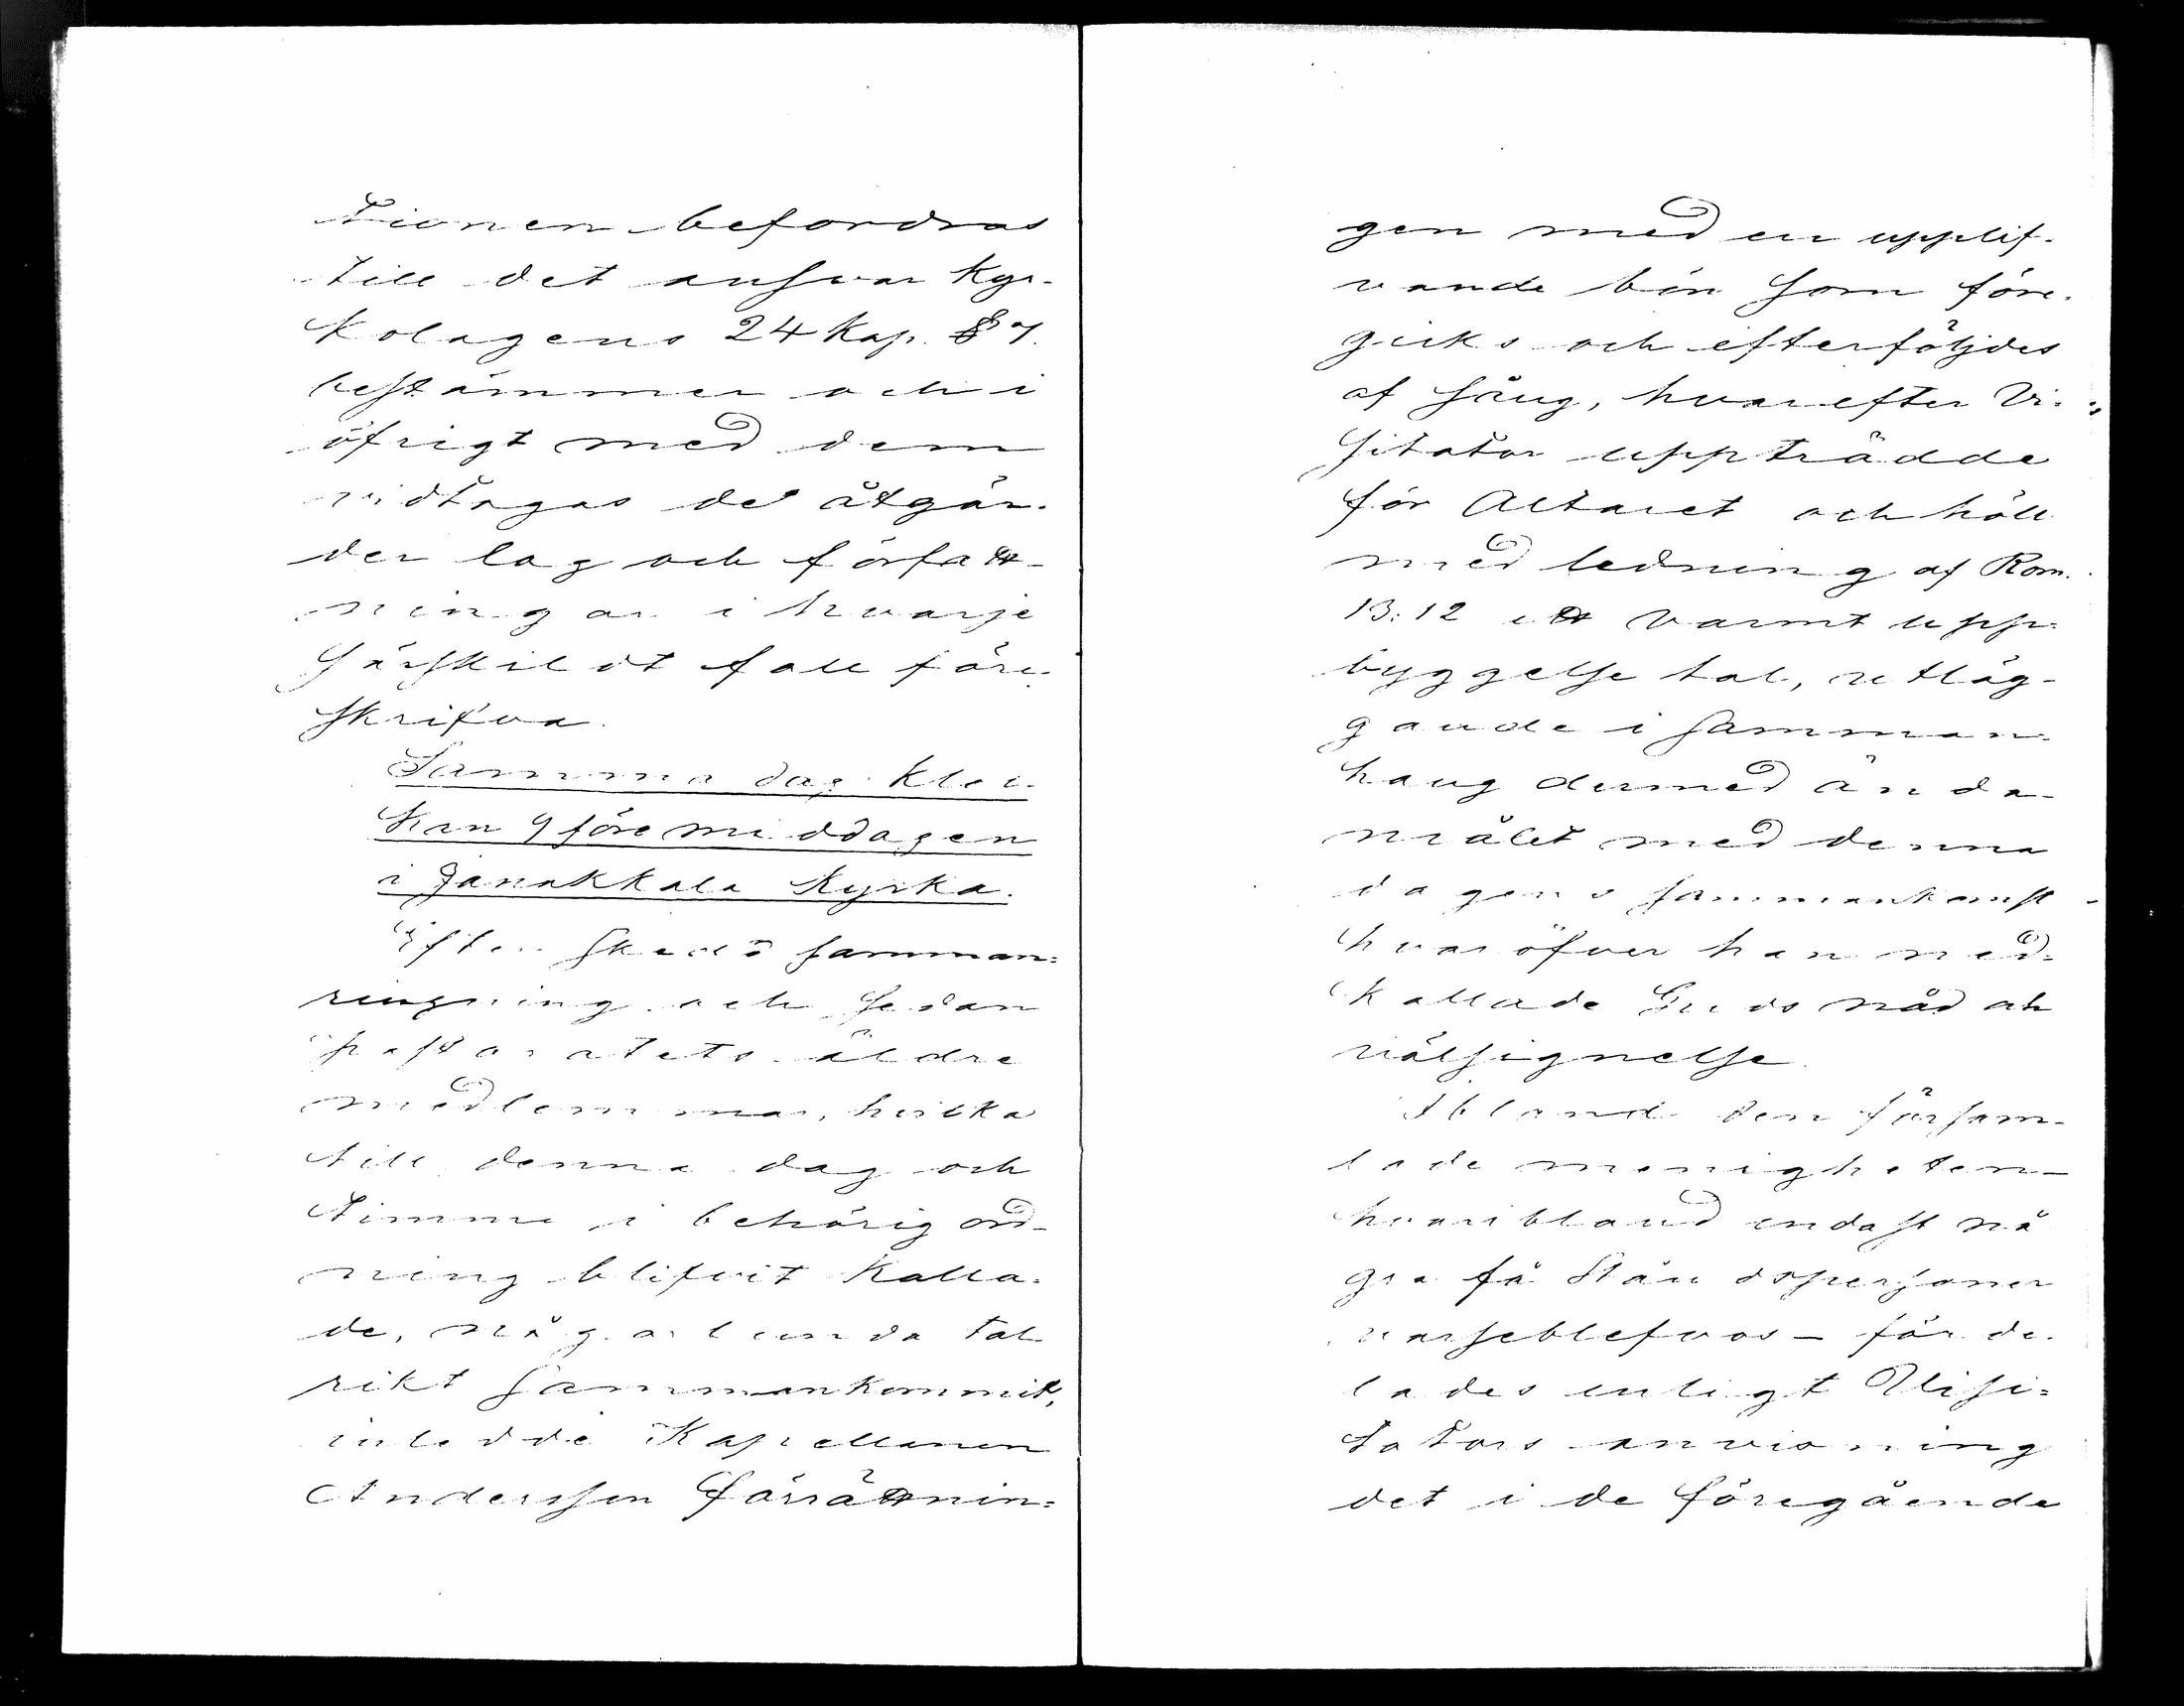 tionen befordras
till det ansvar Kyr-
kolagens 24 Kap. § 7.
bestämmer och i
öfrigt med dem
vidtagas de åtgär-
der lag och författ-
ningar i hvarje
särskildt fall före-
skrifva.
Samma dag Kloc-
kan 9 föremiddagen
i Janakkala Kyrka.
Efter skedd samman-
ringning och sedan
pastoratets äldre
medlemmar, hvilka
till denna dag och
timme i behörig ord-
ning blifvit kalla-
de, någorlunda tal
rikt sammankommit,
inledde Kapellanen
Andersson förrättnin-
gen med en upplif-
vande bön som före-
gicks och efterföljdes
af sång, hvarefter Vi-
sitator uppträdde
för Altaret och höll
med ledning af Rom.
13:12 ett varmt upp-
byggelse tal, utläg-
gande i samman-
hang dermed ända-
målet med denna
dagens sammankomst -
hvaröfver han ned-
kallade Guds nåd och
välsignelse.
Ibland den försam-
lade menigheten -
hvaribland endast nå
gra få Ståndspersoner
varseblefvos - förde-
lades enligt Visi-
tators anvisning
det i de föregående